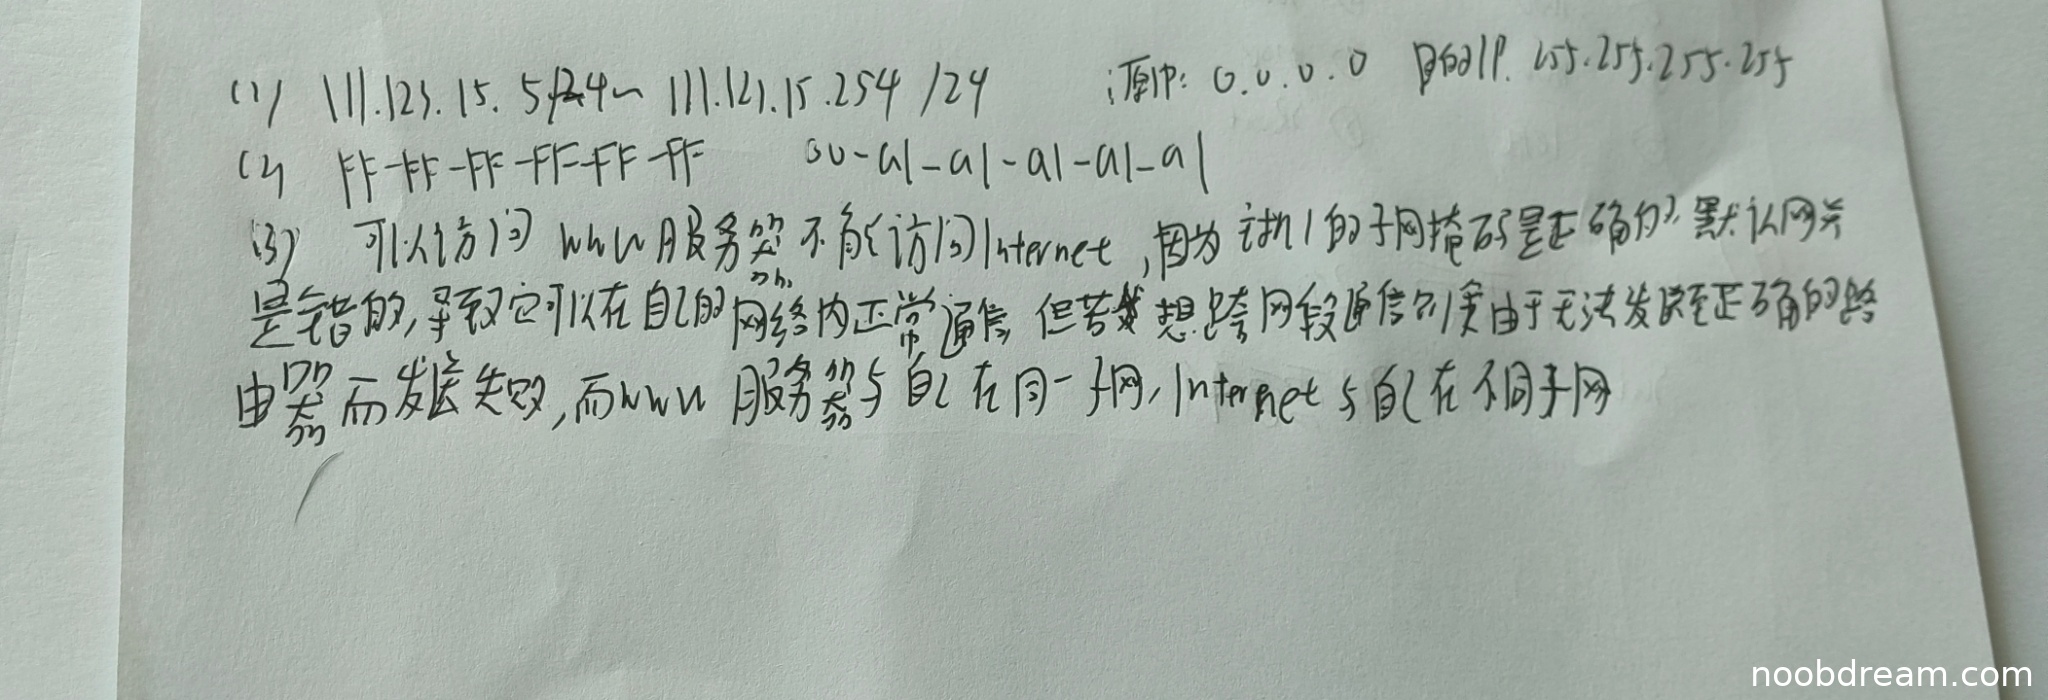 (1) 111.123.15.5/24~111.123.15.254/24 源IP: 0.0.0.0 目的IP. 255.255.255.255
(2) FF-FF-FF-FF-FF-FF 00-a1-a1-a1-a1-a1
(3) 可以访问www服务器不能访问Internet,因为主机1的子网掩码是正确的,默认网关
是错的,导致它可以在自己的网络内正常通信,但若想跨网段通信则会由于无法发送至正确的路
由器而发送失败,而www服务器与自己在同一子网,Internet与自己在不同子网
noobdream.com